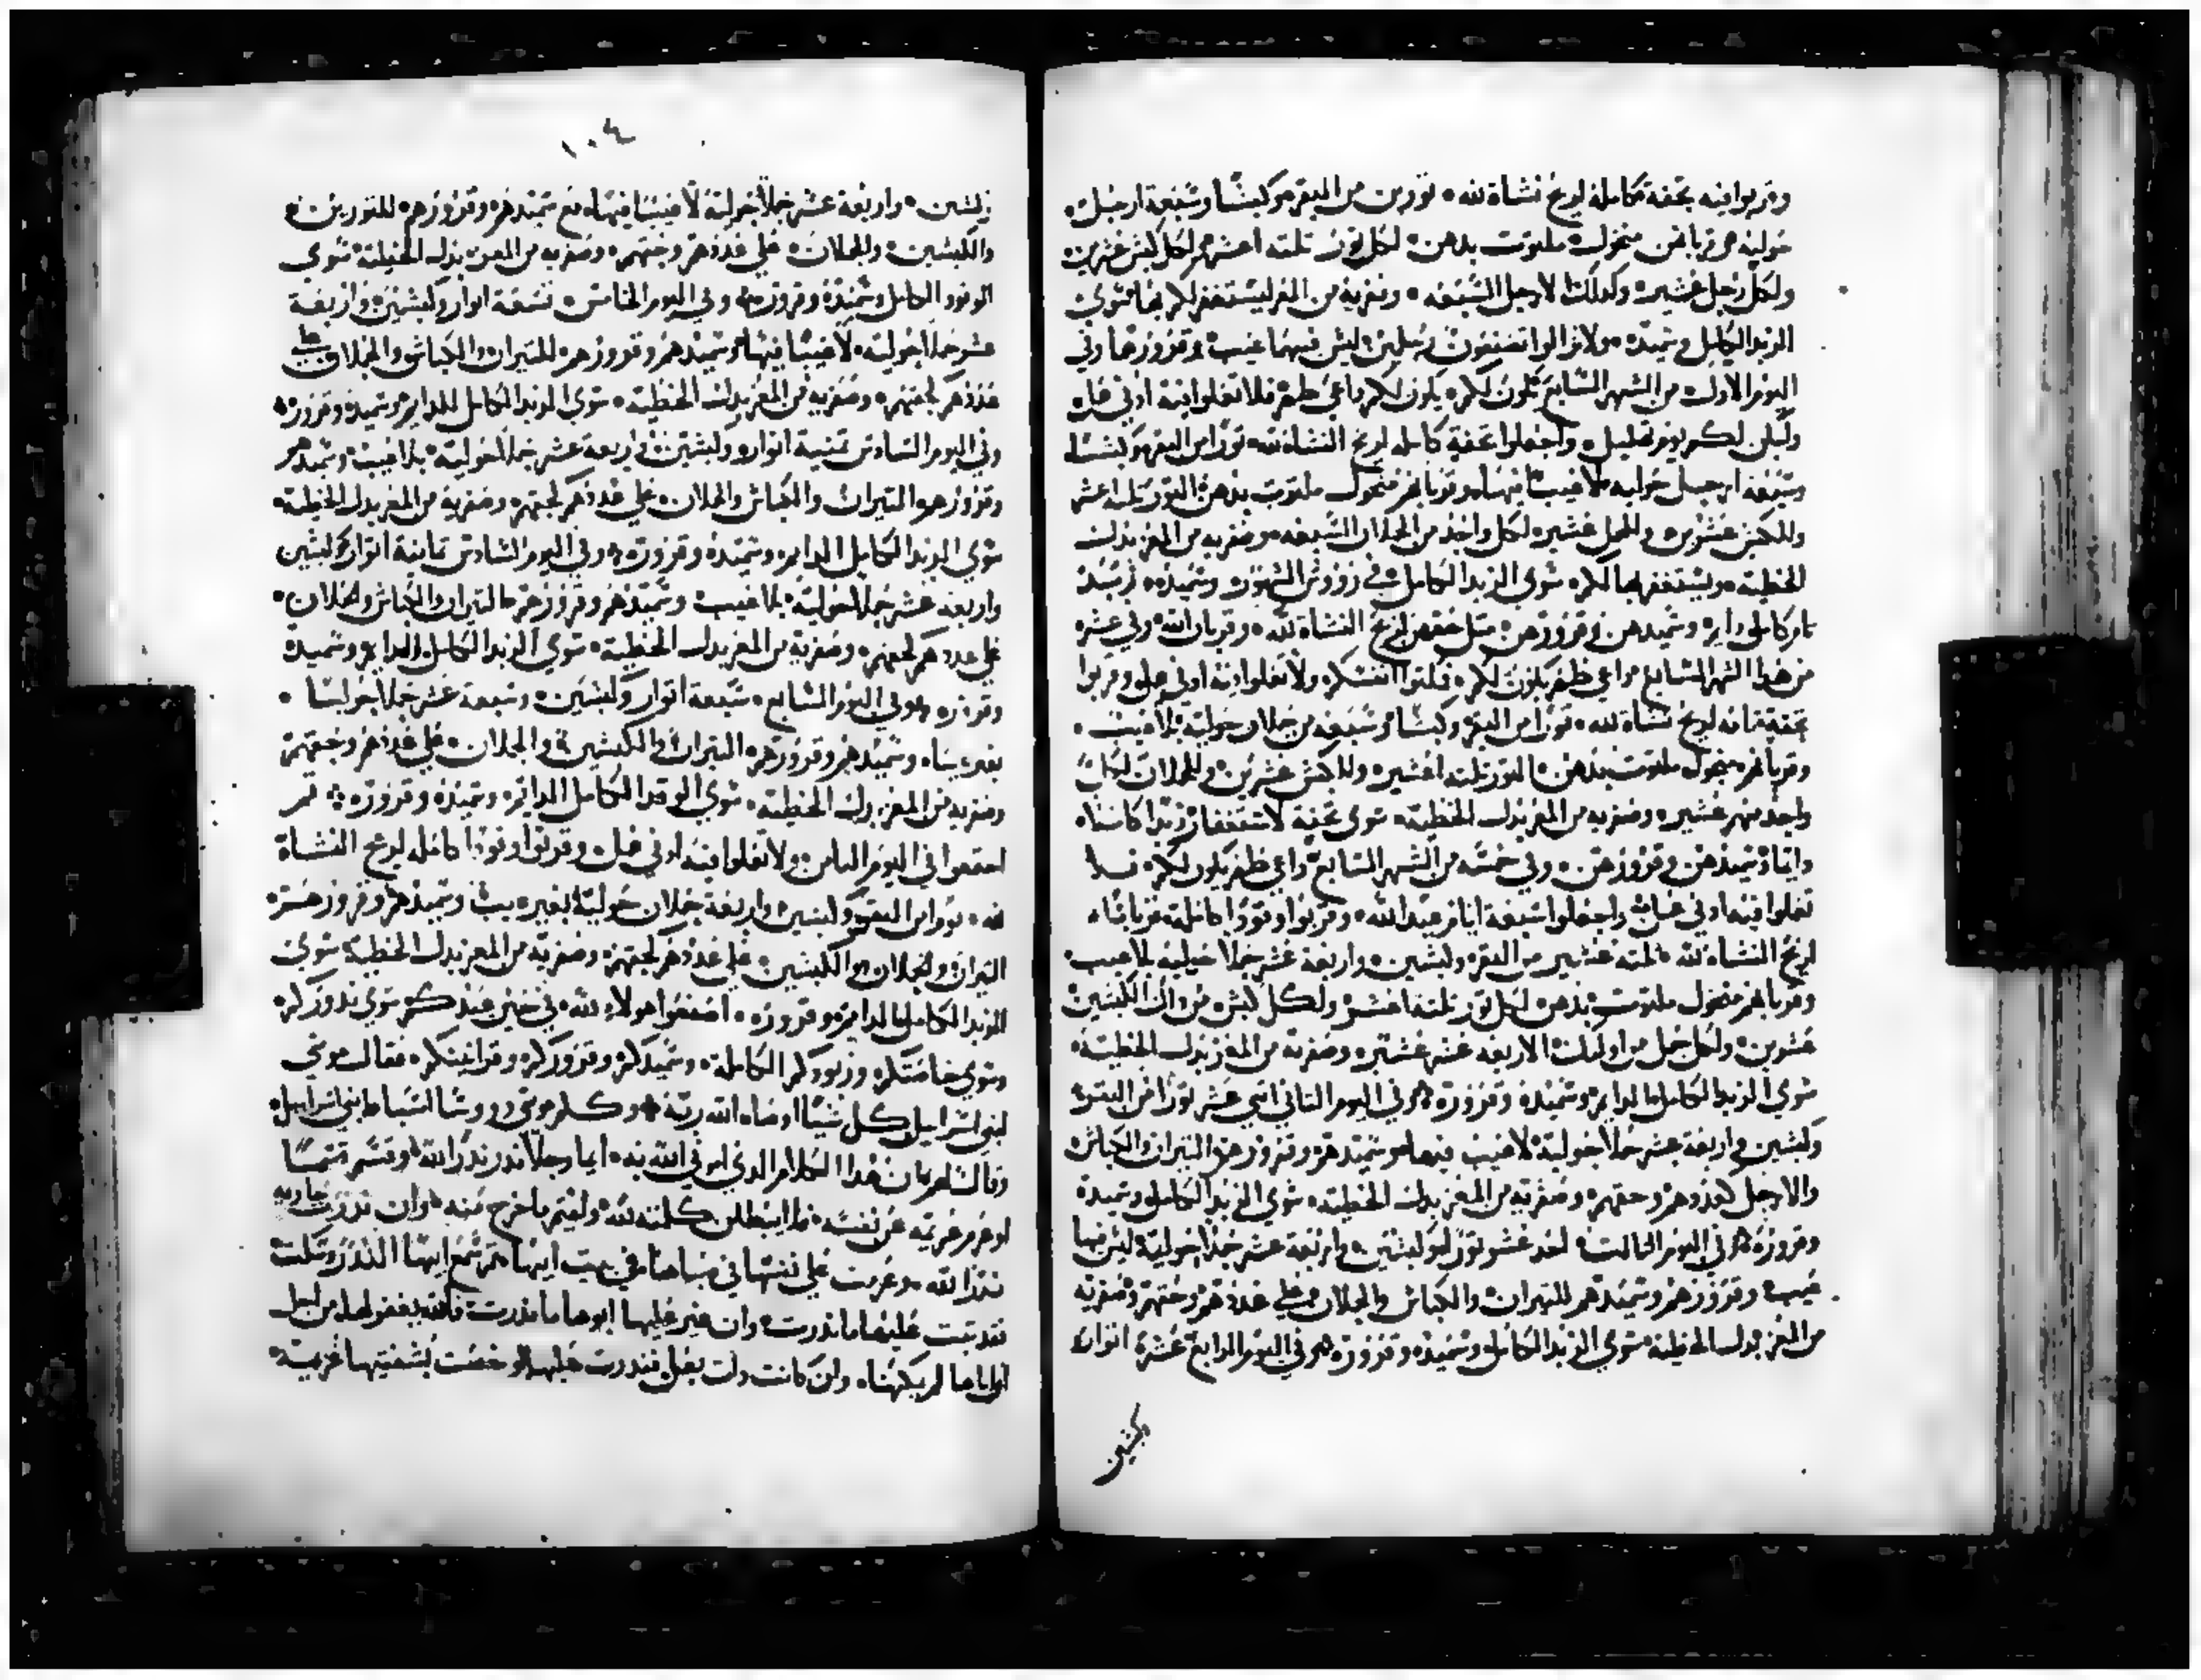 وقربوا فيه تحفة كاملة لريح نشاة لله تورين من البقر وكبشا وسبعة ارجل
حولية وقربانهن منخول ملتوت بدهن لكل تور تلته اعشر ولكل كبش عشرين
ولكل رجل عشير وكدلك لارجل السبعه وصفريه من المعز ليستغفر لكم بها سوي
الزبد الكامل وسميده ولا تزالوا تصنعون رجلين ليس فيهما عيب وقزوزها وفي
اليوم الاول من الشهر السابع يكون لكم داعي ظفر فلا تعلوا فيه ادني عمل
وليكن لكم يوم تهليل واجعلوا تحفة كاملة لريح النشاة لله تورا من البقر وكبشا
وسبعة ارجل حوليه لا عيب فيها وقربانهن منخول ملتوت بدهن التور تلته اعشر
وللكبش عشرين وللحمل عشير لكل واحد من الحملان السبعه وصفريه من المعز بدل
الخطية ويستغفر بها لكم سوي الزبد الكامل في رووس الشهور وسميده
كامل دايم وسميدهن وقزوزهن مثل حقهن لريح النشاة لله وقربان الله وفي عشره
من هدا الشهر السابع داعي ظفر يكون لكم ولا تعلوا فيه ادني عمل وقربوا
تحفة لريح نشاة لله تورا من البقر وكبشا وسبعه من حملان حولية بلا عيب
وقربانهن منخول ملتوت بدهن للتور تلته اعشير وللكبش عشرين وللحملان لكل
واحد منهم عشير وصفريه من المعز بدل الخطية سوي تحفة الاستغفار
وسميدهن وقزوزهن وفي خمسه من الشهر السابع داعي ظفر يكون لكم فلا
تعلوا فيه ادني عمل واجعلوا سبعة ايام عيدا لله وقربوا وقودا كاملة قربانا
لريح النشاة لله تلتة عشير من البقر وكبشين واربعة عشر حملا حولية بلا عيب
وقربانهن منخول ملتوت بدهن لكل تور تلتة اعشر ولكل كبش من الكبشين
عشرين ولكل حمل من اوليك الاربعه عشر عشير وصفرية من المعز بدل الخطية
سوي الزبد الكامل الدايم وسميده وقزوزه وفي اليوم التاني اتني عشر تورا من البقر
وكبشين واربعة عشر حملا حولية لا عيب فيها وسميدهم وقزوزهم التيران والكباش
والارجل كعددهم وحقهم وصفرية من المعز بدل الخطية سوي الزبد الكامل وسميده
وقزوزه وفي اليوم التالت احد عشر تورا وكبشين واربعة عشر حملا حولية ليس فيها
عيب وقزوزهم وسميدهم للتيران والكباش والحملان علي عددهم وحقهم وصفرية
من المعز بدل الخطية سوي الزبد الكامل وسميده وقزوزه وفي اليوم الرابع عشرة اتوار
وكبشين
١٠٤
وكبشين واربعة عشر حملا حولية لا عيب فيها مع سميدهم وقزوزهم للتورين
والكبشين والحملان علي عددهم وجهتهم وصفريه من المعز بدل الخطية سوي
الوقود الكامل وسميده وقزوزه وفي اليوم الخامس تسعة اتوار وكبشين واربعة
عشر حملا حولية لا عيب فيها وسميدهم وقزوزهم للتيران والكباش والحملان علي
عددهم لجهتهم وصفريه من المعز بدل الخطية سوي الزبد الكامل الدايم وسميده وقزوزه
وفي اليوم السادس تمنية اتوار وكبشين واربعة عشر حملا حولية بلا عيب وسميدهم
وقزوزهم التيران والكباش والحملان علي عددهم لجهتهم وصفرية من المعز بدل الخطية
سوي الزبد الكامل الدايم وسميده وقزوزه وفي اليوم السادس تمانية اتوار وكبشين
واربعة عشر حملا حولية بلا عيب وسميدهم وقزوزهم التيران والكباش والحملان
علي عددهم لجهتهم وصفرية من المعز بدل الخطية سوي الزبد الكامل الدايم وسميده
وقزوزه وفي اليوم السابع سبعة اتوار وكبشين وسبعة عشر حملا حوليا
بغير وسميدهم وقزوزهم التيران والكبشين والحملان علي عددهم وجهتهم
وصفريه من المعز بدل الخطية سوي الوقد الكامل الدايم وسميده وقزوزه تم
اجتمعوا في اليوم التامن ولا تعلوا فيه ادني عمل وقربوا وقودا كاملة لريح النشاة
لله تورا من البقر وكبشين واربعة حملان حولية بغير عيب وسميدهم وقزوزهم
التيران والحملان والكبشين علي عددهم لجهتهم وصفرية من المعز بدل الخطية سوي
الزبد الكامل الدايم وقزوزه اصنعوا هولاء لله في حين عيدكم سوي ندوركم
وسوي خاصتكم وزبودكم الكاملة وسميدكم وقزوزكم وقرابينكم فقال موسي
لبني اسراييل كل شيا اوصاه الله ربه وكلم موسي رووسا اسباط بني اسراييل
وقال لهم ان هدا الكلام الدي امرني الله به ايما رجلا ندر ندرا لله وقسم قسما
او عزم عزيمه عن نفسه فلا يبطلن كلمته لله وليتم ما خرج منه وان ندرت جاريه
ندرا لله وعزمت علي نفسها في صباها في بيت ابيها تم سمع ابيها الندر وسكت
فقد تبت عليها ما ندرت وان غير عليها ابوها ما ندرت فالله يغفر لها من اجل
ان اباها لم يكهنا وان كانت دات بعل فندرت عليها او خصت بشفتيها عزيمة